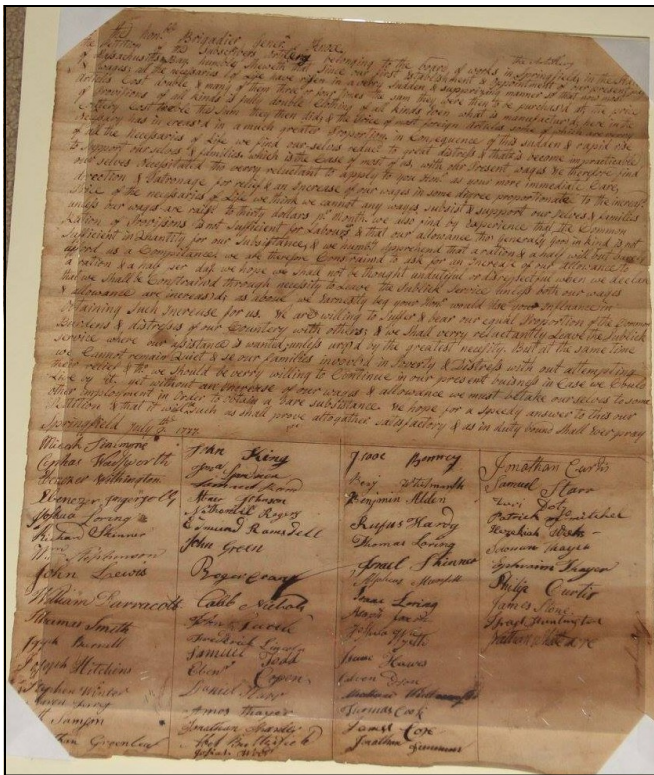 To the Honble Brigadier Genel Knox
the Petition of the Subscribers belonging to the board of works in Springfield, in the State
of Massachusetts Bay humbly Sheweth that Since our first Establishment & Appointment of our present
wages, all the necessaries of Life have risen in a very Sudden & Surprizing manner so that now most
articles Cost double & many of them three or four times the sum they were then to be purchas'd at, the price
of Provisions of all kinds is fully double Clothing of all kinds even what is manufactur'd here in the
Country Cost treble the Sum they then did, & the Price of most foreign Articles some of which are
necessary has increas'd in a much greater proportion, in Consequence of this sudden & rapid rise
of all the Necessaries of Life we find our selves reduct to great distress & that is become impracticable
to Support our selves & families which is the Case of most of us, with our Present wages we therefore find
our selves Necessitated tho verry reluctant to apply to your Honr as your more immediate Care
direction & Patronage for relief & an Increase of our wages in some degree proportionate to the increas'd
Price of the necessaries of Life we think we cannot any ways subsist & support our selves & families
unless our wages are raisd to thirty dollars pr month. we also find by experience that the Common
Ration of Provisions is not Sufficient for Labours & that our allowance tho generally good in kind is not
Sufficient in Quantity for our Subsistance, & we humbly apprehend that a ration & a half will but barely
afford us a Competance, we are therefore Constraind to ask for an increase of our allowance to
a ration & a half per day. we hope we shall not be thought undutiful or disrespectful when we declare
that we Shall be Constraind through necessity to Leave the Publick Service unless both our wages
& allowance are increased as above we Earnestly beg your Honr would use your influence in
obtaining Such Increase for us. We are willing to Suffer & bear our equal Proportion of the Common
Burdens & distresses of our Countery with others, & we Shall verry reluctantly Leave the Publick
Service where our assistance is wanted unless urg'd by the greatest necessity. But at the same time
we Cannot remain Quiet & se our families involv'd in Poverty & Distress with out attempting
their relief & tho we Should be verry willing to Continue in our present buisness in Case we Could
Live by it, yet without an increase of our wages & allowance we must betake our selves to some
other imployment in order to obtain a bare subsistance we hope for a Speedy answer to this our
Petition & that it will such as shall prove altogather satisfactory & as in duty bound shall Ever pray
Springfield July 1777
Cephas Wadsworth
Ebenezer Withington
Joshua Loring
Richard Skinner
John Lewis
William Barracott
Thomas Smith
Joseph Burrell
Joseph Hitchins
Stephen Winter
Samson
Greenleaf
John King
Johnson
Nathaniel Rogers
Edmund Ramsdell
John Green
Roger Cary
Caleb Nichols
Frederick Lincoln
Samuel Todd
Ebenr Copen
Daniel Starr
Amos Thayer
Jonathan Shandler
Abel Butterfield
Isaac Bonney
Benj Whitmarsh
Benjamin Alden
Rufus Hardy
Thomas Loring
Israel Skinner
Isaac Loring
Isaac Hawes
Thomas Cook
James Cox
Jonathan Simmons
Jonathan Curtis
Samuel Starr
Levi Doty
Patrick
Hezekiah
Thayer
Ephraim Thayer
Philip Curtis
James Stone
Israel Huntington